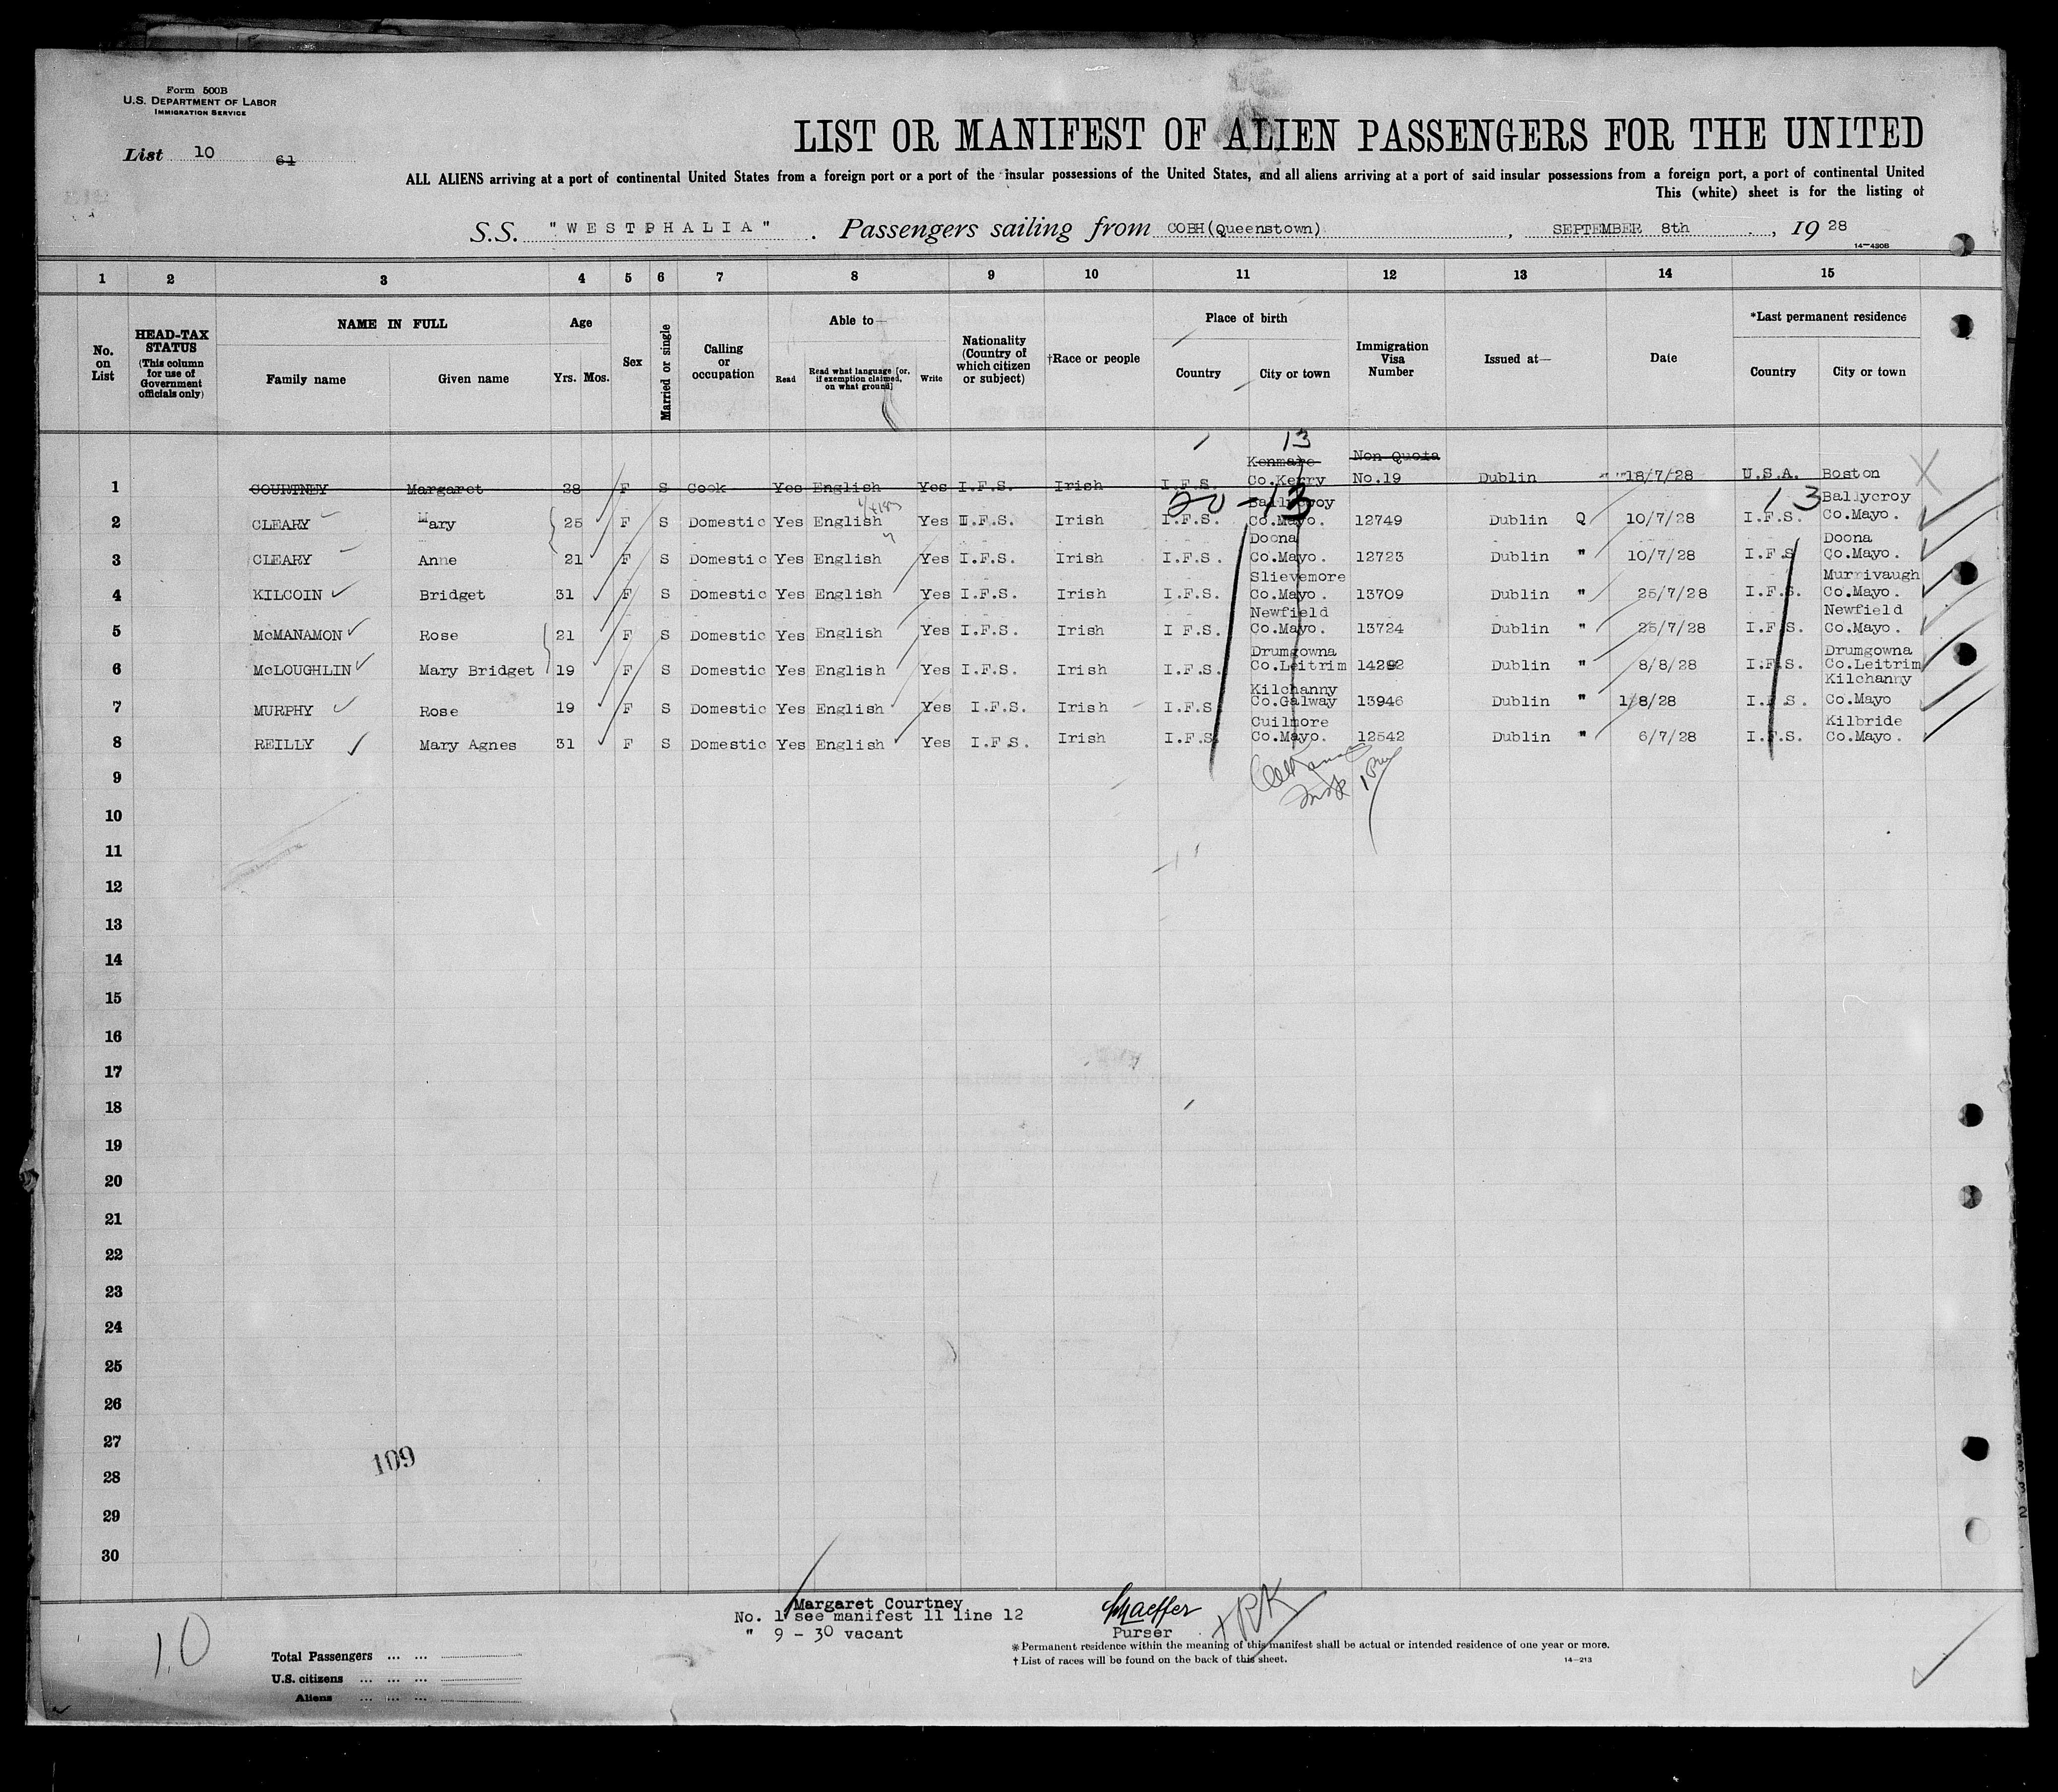 Form 500B
U.S. DEPARTMENT OF LABOR
IMMIGRATION SERVICE
List 10 61
LIST OR MANIFEST OF ALIEN PASSENGERS FOR THE UNITED
ALL ALIENS arriving at a port of continental United States from a foreign port or a port of the insular possessions of the United States, and all aliens arriving at a port of said insular possessions from a foreign port, a port of continental United
This (white) sheet is for the listing of
S.S. "WESTPHALIA". Passengers sailing from COBH(Queenstown), SEPTEMBER 8th, 19 28
14-430B
1 2 3 4 5 6 7 8 9 10 11 12 13 14 15
No. on List
HEAD-TAX STATUS (This column for use of Government officials only)
NAME IN FULL
Family name Given name
Age
Yrs. Mos.
Sex
Married or single
Calling or occupation
Able to—
Read Read what language [or, if exemption claimed, on what ground] Write
Nationality (Country of which citizen or subject)
†Race or people
Place of birth
Country City or town
Immigration Visa Number
Issued at—
Date
*Last permanent residence
Country City or town
13
Kenmare Non Quota
1 COURTNEY Margaret 38 F S Cook Yes English Yes I.F.S. Irish I.F.S. Co.Kerry No.19 Dublin 18/7/28 U.S.A. Boston
20-13 13
Ballycroy Ballycroy
2 CLEARY Mary 25 F S Domestic Yes English Yes I.F.S. Irish I.F.S. Co.Mayo. 12749 Dublin Q 10/7/28 I.F.S. Co.Mayo.
Doona Doona
3 CLEARY Anne 21 F S Domestic Yes English Yes I.F.S. Irish I.F.S. Co.Mayo. 12723 Dublin " 10/7/28 I.F.S Co.Mayo.
Slievemore Murrivaugh
4 KILCOIN Bridget 31 F S Domestic Yes English Yes I.F.S. Irish I.F.S. Co.Mayo. 13709 Dublin " 25/7/28 I.F.S. Co.Mayo.
Newfield Newfield
5 McMANAMON Rose 21 F S Domestic Yes English Yes I.F.S. Irish I F.S. Co.Mayo. 13724 Dublin " 25/7/28 I.F.S. Co.Mayo.
Drumgowna Drumgowna
6 McLOUGHLIN Mary Bridget 19 F S Domestic Yes English Yes I.F.S. Irish I.F.S. Co.Leitrim 14292 Dublin " 8/8/28 I.F.S. Co.Leitrim
Kilchanny Kilchanny
7 MURPHY Rose 19 F S Domestic Yes English Yes I.F.S. Irish I.F.S Co.Galway 13946 Dublin " 1/8/28 I.F.S. Co.Mayo
Cuilmore Kilbride
8 REILLY Mary Agnes 31 F S Domestic Yes English Yes I.F.S. Irish I.F.S. Co.Mayo. 12542 Dublin " 6/7/28 I.F.S. Co.Mayo.
9
10
11
12
13
14
15
16
17
18
19
20
21
22
23
24
25
26
27
28
29
30
109
Margaret Courtney
No. 1 see manifest 11 line 12
" 9 - 30 vacant
Schaeffer
Purser
10
Total Passengers ... ...
U.S. citizens ... ... ...
Aliens ... ... ...
* Permanent residence within the meaning of this manifest shall be actual or intended residence of one year or more.
† List of races will be found on the back of this sheet.
14-213